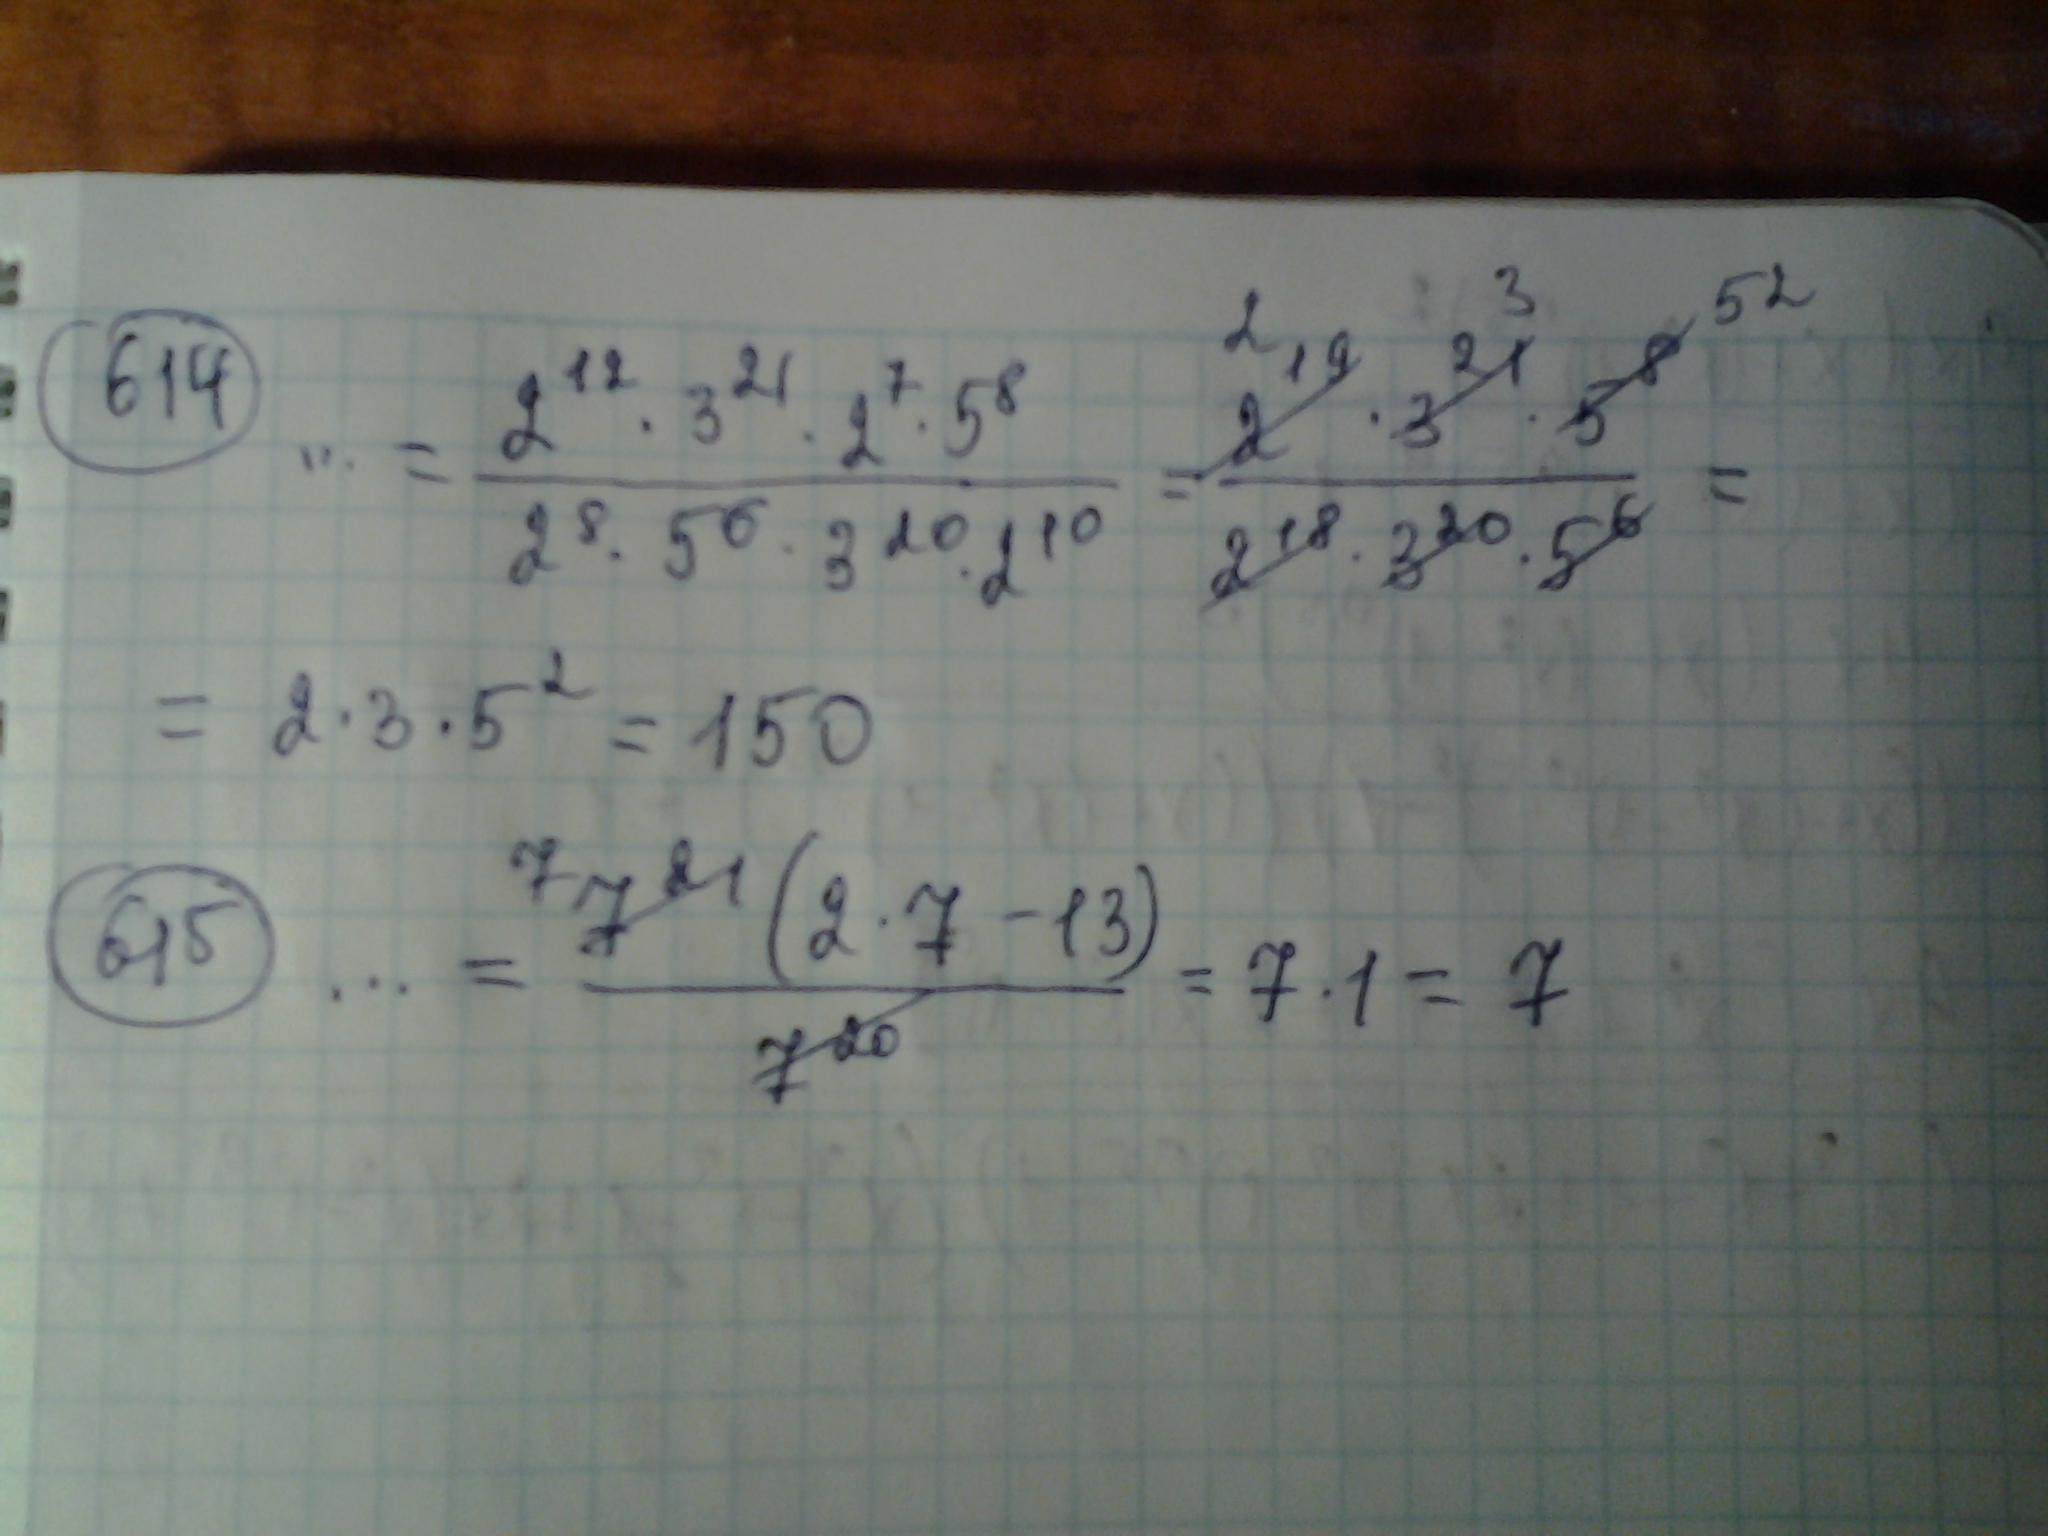 614 ... = (2^12 · 3^21 · 2^7 · 5^8) / (2^8 · 5^6 · 3^20 · 2^10) = (2 2^19 · 3^21 3 · 5^8 5^2) / (2^18 · 3^20 · 5^6) =
= 2 · 3 · 5^2 = 150
615 ... = (7 7^21 (2 · 7 - 13)) / 7^20 = 7 · 1 = 7